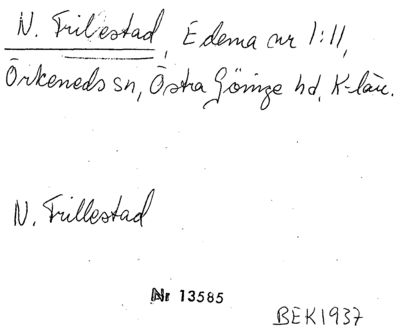 N. Trillestad, Edema nr 1:11,
Örkeneds sn, Östra Göinge hd, K-län.
N. Trillestad
Nr 13585
BEK1937